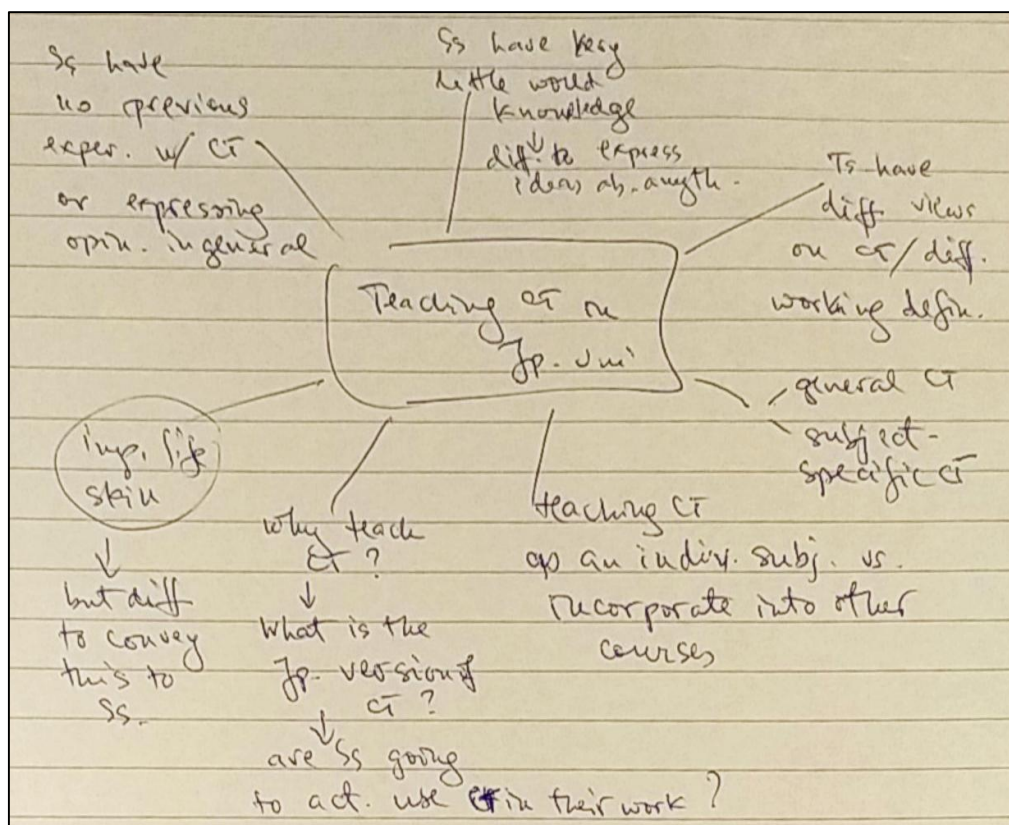 Ss have
no previous
exper. w/ CT
or expressing
opin. in general
Ss have very
little world
knowledge
↓
diff. to express
ideas ab. anyth.
Ts have
diff views
on CT/diff.
working defin.
Teaching CT in
Jp. uni
general CT
subject-
specific CT
imp. life
skill
↓
but diff
to convey
this to
Ss.
why teach
CT?
↓
What is the
Jp. version of
CT?
↓
are Ss going
to act. use CT in their work?
teaching CT
as an indiv. subj. vs.
incorporate into other
courses